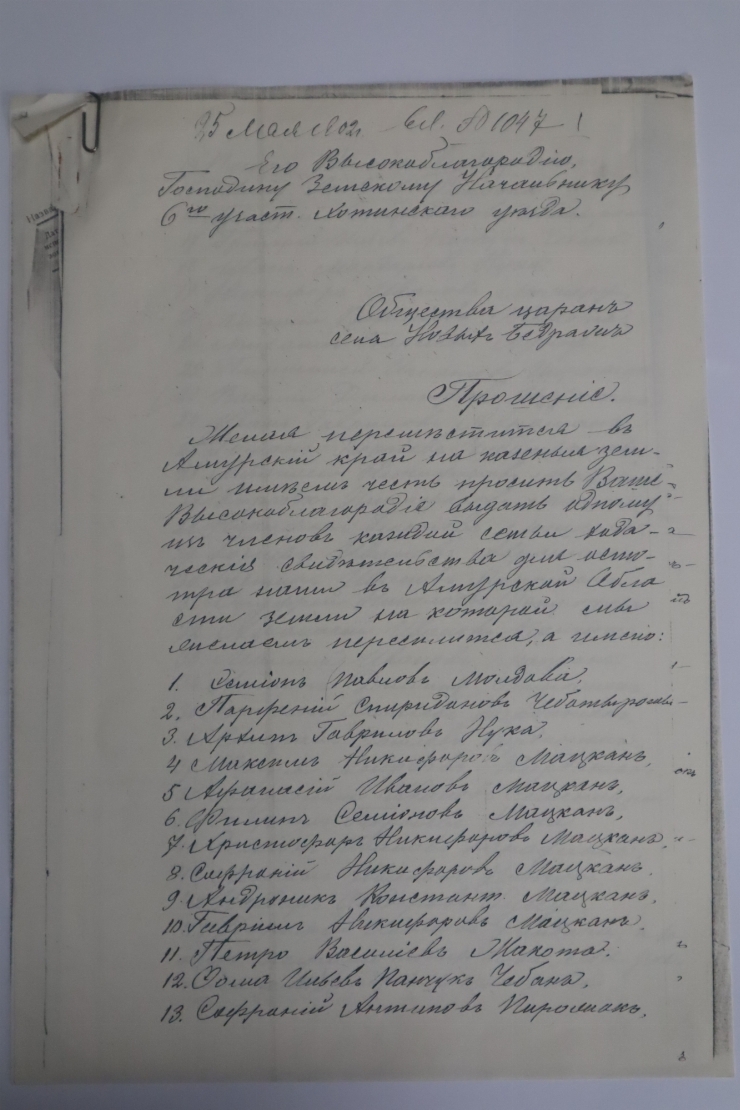 25 Мая 1902 г. вх. № 1047
Его Высокоблагородію,
Господину Земскому Начальнику
6го участ. Хотинскаго уѣзда.
Общества царанъ
села Новыхъ Бедражъ
Прошеніе.
Желая переместится въ
Амурскій край на казеныя зем-
ли имѣемъ честь просить Ваше
Высокоблагородіе выдать одному
изъ членовъ каждой семьи хода-
ческія свидѣтельства для осмо-
тра нами въ Амурской Обла
сти земли на которой мы
желаемъ переселится, а имено:
1. Семіонъ Павловъ Молдова,
2. Парфеній Спиридоновъ
3. Архипъ Гавриловъ Нука,
4 Максимъ Никифоровъ Мацканъ,
5 Афанасій Ивановъ Мацканъ,
6. Филипъ Семіоновъ Мацканъ,
7. Христофоръ Никифоровъ Мацканъ,
8. Софроній Никифоровъ Мацканъ.
9. Андроникъ Констант. Мацканъ,
10. Гавріилъ Никифоровъ Мацканъ.
11. Петро Василіевъ Макота.
12. Ѳома Ильевъ Панчукъ Чебанъ,
13. Софроній Антиповъ